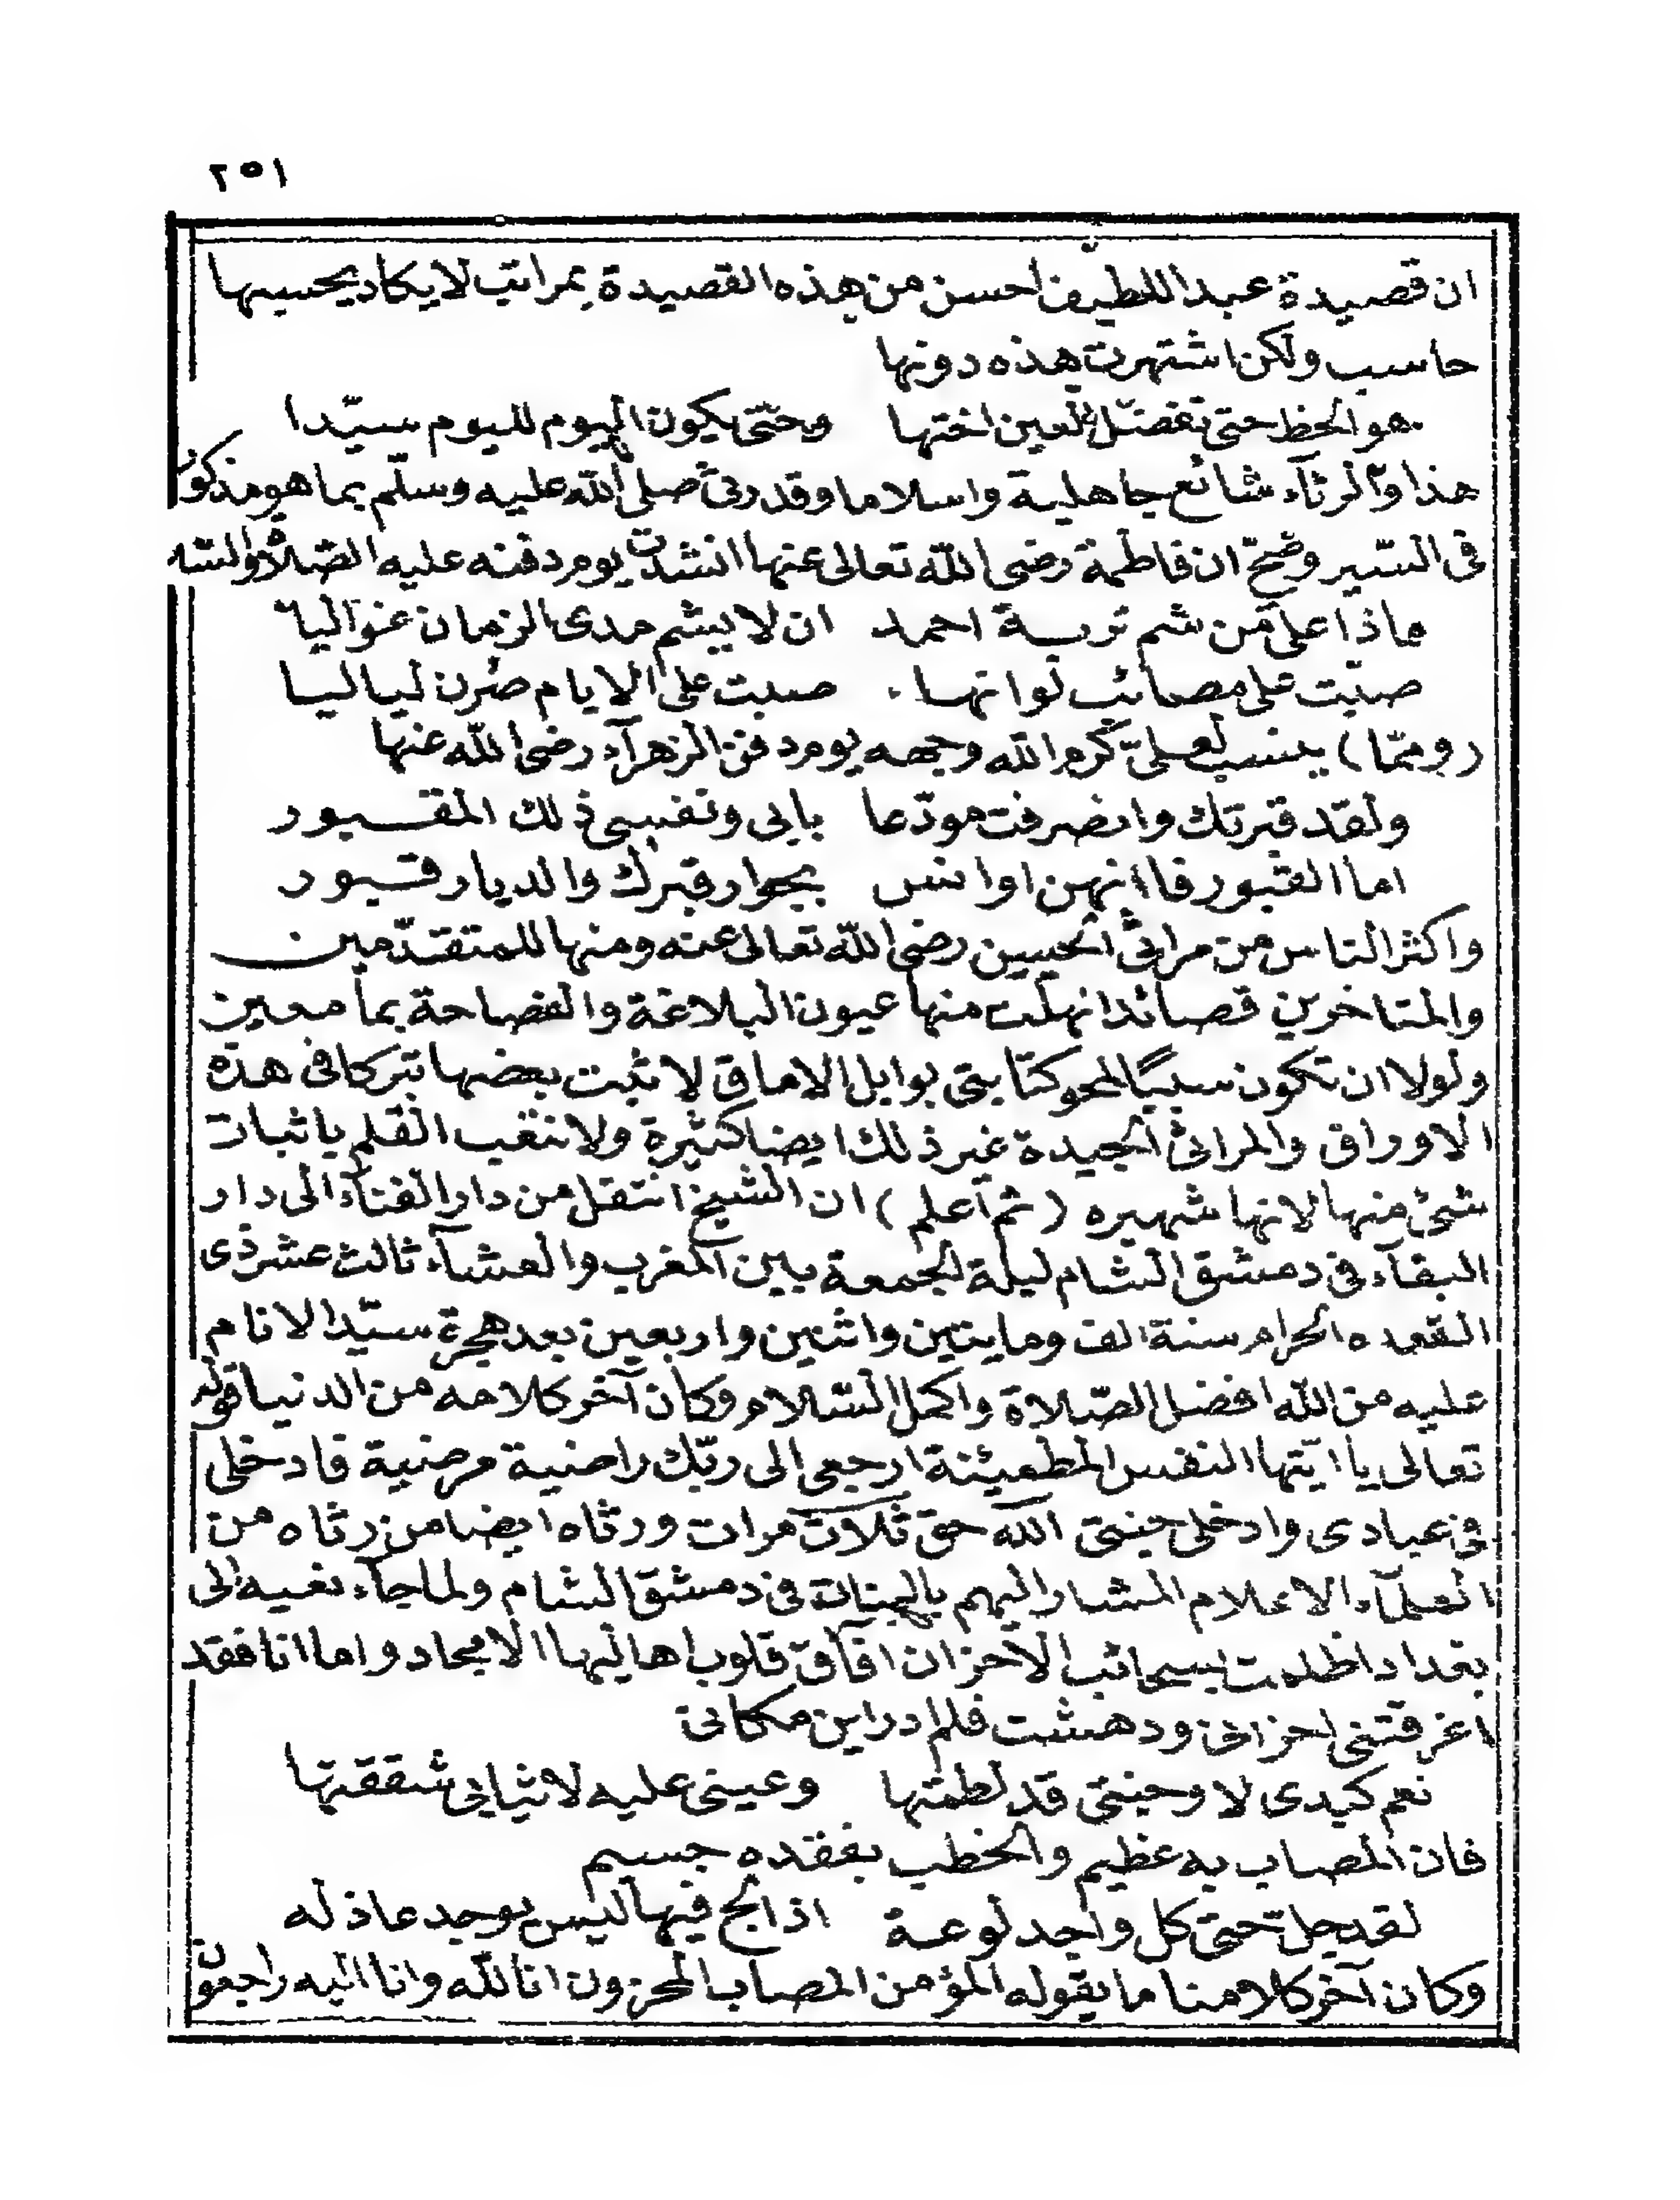 ٢٥١
ان قصيدة عبد اللطيف احسن من هذه القصيدة بمراتب لا يكاد يحسبها
حاسب ولكن اشتهرت هذه دونها
هو الحظ حتى تفضل العين اختها وحتى يكون اليوم لليوم سيّدا
هذا والرثاء شائع جاهلية واسلاما وقد رثى صلى الله عليه وسلّم بما هو مذكور
فى السّير وصحّ ان فاطمة رضى الله تعالى عنها انشدت يوم دفنه عليه الصّلاة والسّلا
ماذا على من شم تربة احمد ان لا يشم مدى الزمان غواليا
صبت على مصائب لو انها صبت على الايام صرن لياليا
(وممّا) ينسب لعلىّ كرم الله وجهه يوم دفن الزهرآء رضى الله عنها
ولقد قبرتك وانصرفت مودّعا بابى ونفسى ذلك المقبور
اما القبور فاانهن اوانس بجوار قبرك والديار قبور
واكثر الناس من مراثى الحسين رضى الله تعالى عنه ومنها للمتقدّمين
والمتاخرين قصائد انهلت منها عيون البلاغة والفصاحة بمآ معين
ولولا ان تكون سببًا لمحو كتابتى بوابل الاماق لاثبت بعضها تبركا فى هذه
الاوراق والمراثى الجيدة غير ذلك ايضا كثيرة ولا نتعب القلم باثبات
شئ منها لانها شهيره (ثم اعلم) ان الشيخ انتقل من دار الفنآء الى دار
البقآء فى دمشق الشام ليلة الجمعة بين المغرب والعشآء ثالث عشر ذى
القعده الحرام سنة الف ومايتين واثنين واربعين بعد هجرة سيّد الانام
عليه من الله افضل الصّلاة واكمل السّلام وكان آخر كلامه من الدنيا قوله
تعالى يا ايّتها النفس المطمئنة ارجعى الى ربّك راضية مرضية فادخلى
فى عبادى وادخلى جنتى الله حق ثلاث مرات ورثاه ايضا من رثاه من
العلمآء الاعلام المشار اليهم بالبنان فى دمشق الشام ولما جآء نعيه الى
بغداد اظلمت بسحائب الاحزان افاق قلوب اهاليها الامجاد واما انا فقد
اغرقتنى احزانى ودهشت فلم ادر اين مكانى
نعم كبدى لا وجنتى قد لطمتها وعينى عليه لا ثيابى شققتها
فان المصاب به عظيم والخطب بفقده جسيم
لقد جل حتى كل واجد لوعة اذا لج فيها ليس يوجد عاذله
وكان آخر كلامنا ما يقوله المؤمن المصاب المحزون انا لله وانا اليه راجعون